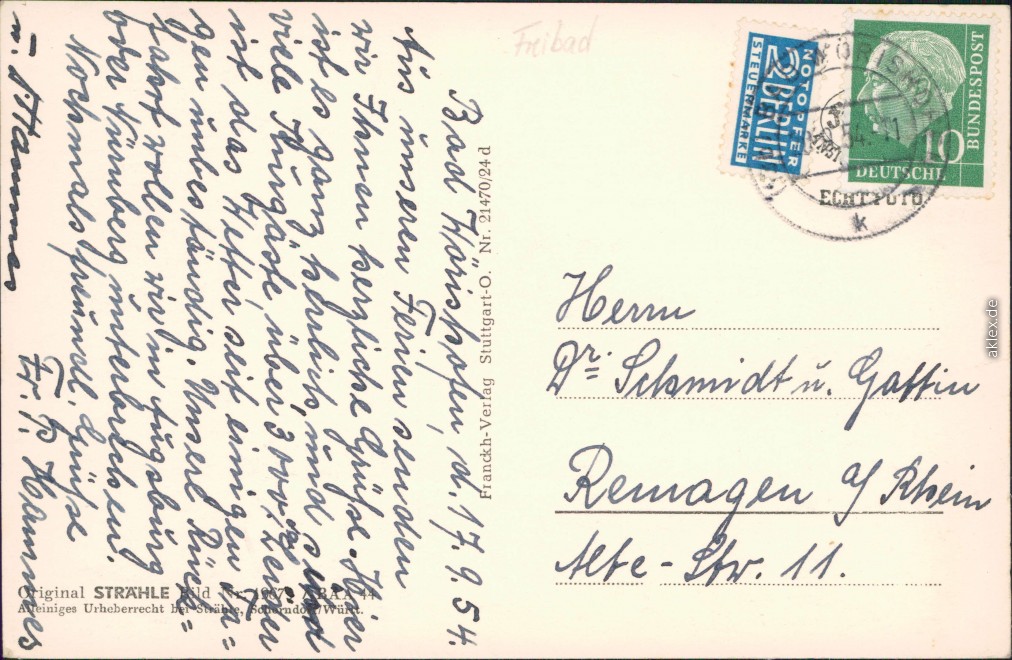 Freibad
Bad Wörishofen, d. 17. 9. 54.
Aus unseren Ferien senden
wir Ihnen herzliche Grüße. Hier
ist es ganz herrlich und sind
viele Kurgäste, über 3000,
ist das Wetter seit einigen Ta=
gen unbeständig. Unsere Rück=
fahrt wollen wir in Augsburg
oder Nürnberg unterbrechen.
Nochmals freundl. Grüße
Fr. P. Hammes
u. Frau
Franckh-Verlag Stuttgart-O. Nr. 21470/24 d
NOTOPFER
2 BERLIN
STEUERMARKE
WÖRISHO
54
k
10
DEUTSCHE
BUNDESPOST
ECHT FOTO
Herrn
Dr. Schmidt u. Gattin
Remagen a/Rhein
Alte-Str. 11.
Original STRÄHLE Bild Nr.
Alleiniges Urheberrecht bei Strähle, Schorndorf/Württ.
aklex.de